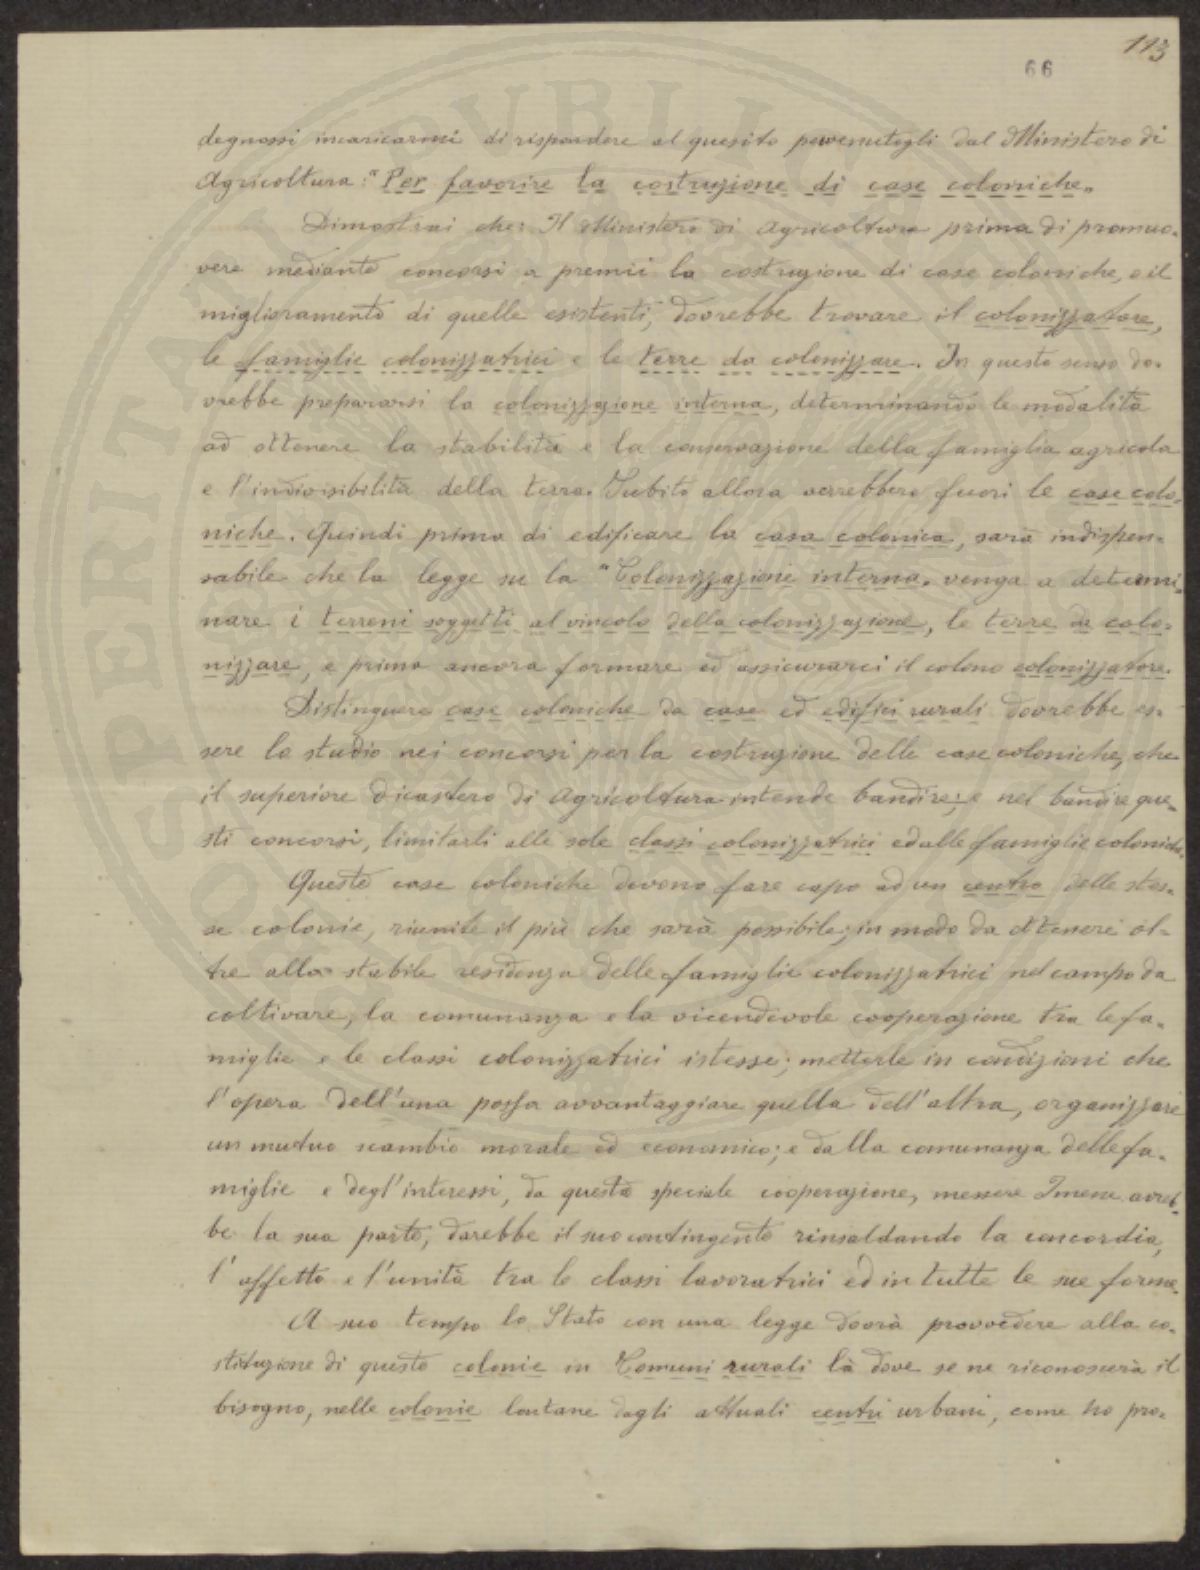 113
66
degnossi incaricarmi di rispondere al quesito pervenutogli dal Ministero di
Agricoltura: "Per favorire la costruzione di case coloniche„
Dimostrai che: Il Ministero di Agricoltura prima di promuo-
vere mediante concorsi a premii la costruzione di case coloniche, o il
miglioramento di quelle esistenti, dovrebbe trovare il colonizzatore,
le famiglie colonizzatrici e le terre da colonizzare. In questo senso do-
vrebbe prepararsi la colonizzazione interna, determinando le modalità
ad ottenere la stabilità e la conservazione della famiglia agricola
e l'indivisibilità della terra. Subito allora verrebbero fuori le case colo-
niche. Quindi prima di edificare la casa colonica, sarà indispen-
sabile che la legge su la "Colonizzazione interna„ venga a determi-
nare i terreni soggetti al vincolo della colonizzazione, le terre da colo-
nizzare, e prima ancora formare ed assicurarci il colono colonizzatore.
Distinguere case coloniche da case ed edifici rurali dovrebbe es-
sere lo studio nei concorsi per la costruzione delle case coloniche, che
il superiore dicastero di Agricoltura intende bandire; e nel bandire que-
sti concorsi, limitarli alle sole classi colonizzatrici ed alle famiglie coloniche.
Queste case coloniche devono fare capo ad un centro delle stes-
se colonie, riunite il più che sarà possibile; in modo da ottenere ol-
tre alla stabile residenza delle famiglie colonizzatrici nel campo da
coltivare, la comunanza e la vicendevole cooperazione tra le fa-
miglie e le classi colonizzatrici istesse; metterle in condizioni che
l'opera dell'una possa avvantaggiare quella dell'altra, organizzare
un mutuo scambio morale ed economico; e dalla comunanza delle fa-
miglie e degl'interessi, da questa speciale cooperazione, messere Imene avreb-
be la sua parte, darebbe il suo contingente rinsaldando la concordia,
l'affetto e l'unità tra le classi lavoratrici ed in tutte le sue forme.
A suo tempo lo Stato con una legge dovrà provvedere alla co-
stituzione di queste colonie in Comuni rurali là dove se ne riconoscerà il
bisogno, nelle colonie lontane dagli attuali centri urbani, come ho pro-